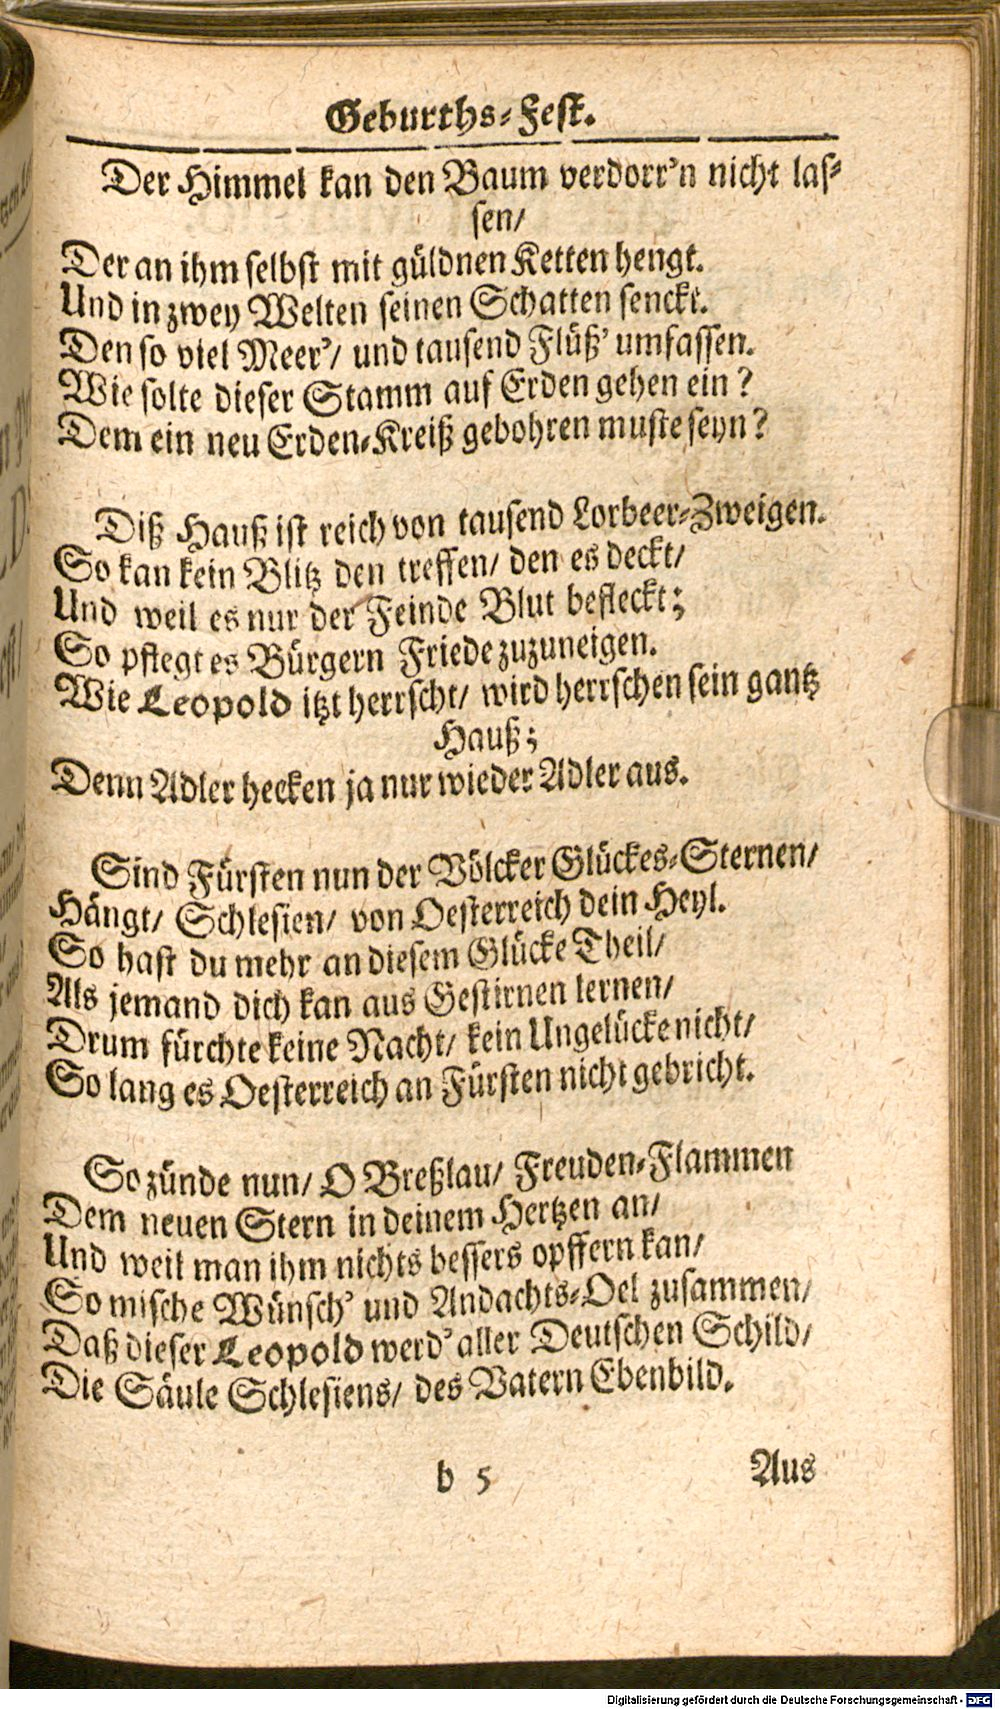 Geburths-Fest.
Der Himmel kan den Baum verdorr'n nicht las-
sen/
Der an ihm selbst mit güldnen Ketten hengt.
Und in zwey Welten seinen Schatten senckt.
Den so viel Meer'/ und tausend Flüß' umfassen.
Wie solte dieser Stamm auf Erden gehen ein?
Dem ein neu Erden-Kreiß gebohren muste seyn?
Diß Hauß ist reich von tausend Lorbeer-Zweigen.
So kan kein Blitz den treffen/ den es deckt/
Und weil es nur der Feinde Blut befleckt;
So pflegt es Bürgern Friede zuzuneigen.
Wie Leopold itzt herrscht/ wird herrschen sein gantz
Hauß;
Denn Adler hecken ja nur wieder Adler aus.
Sind Fürsten nun der Völcker Glückes-Sternen/
Hängt/ Schlesien/ von Oesterreich dein Heyl.
So hast du mehr an diesem Glücke Theil/
Als jemand dich kan aus Gestirnen lernen/
Drum fürchte keine Nacht/ kein Ungelücke nicht/
So lang es Oesterreich an Fürsten nicht gebricht.
So zünde nun/ O Breßlau/ Freuden-Flammen
Dem neuen Stern in deinem Hertzen an/
Und weil man ihm nichts bessers opffern kan/
So mische Wünsch' und Andachts-Oel zusammen/
Daß dieser Leopold werd' aller Deutschen Schild/
Die Säule Schlesiens/ des Vatern Ebenbild.
b 5 Aus
Digitalisierung gefördert durch die Deutsche Forschungsgemeinschaft - DFG